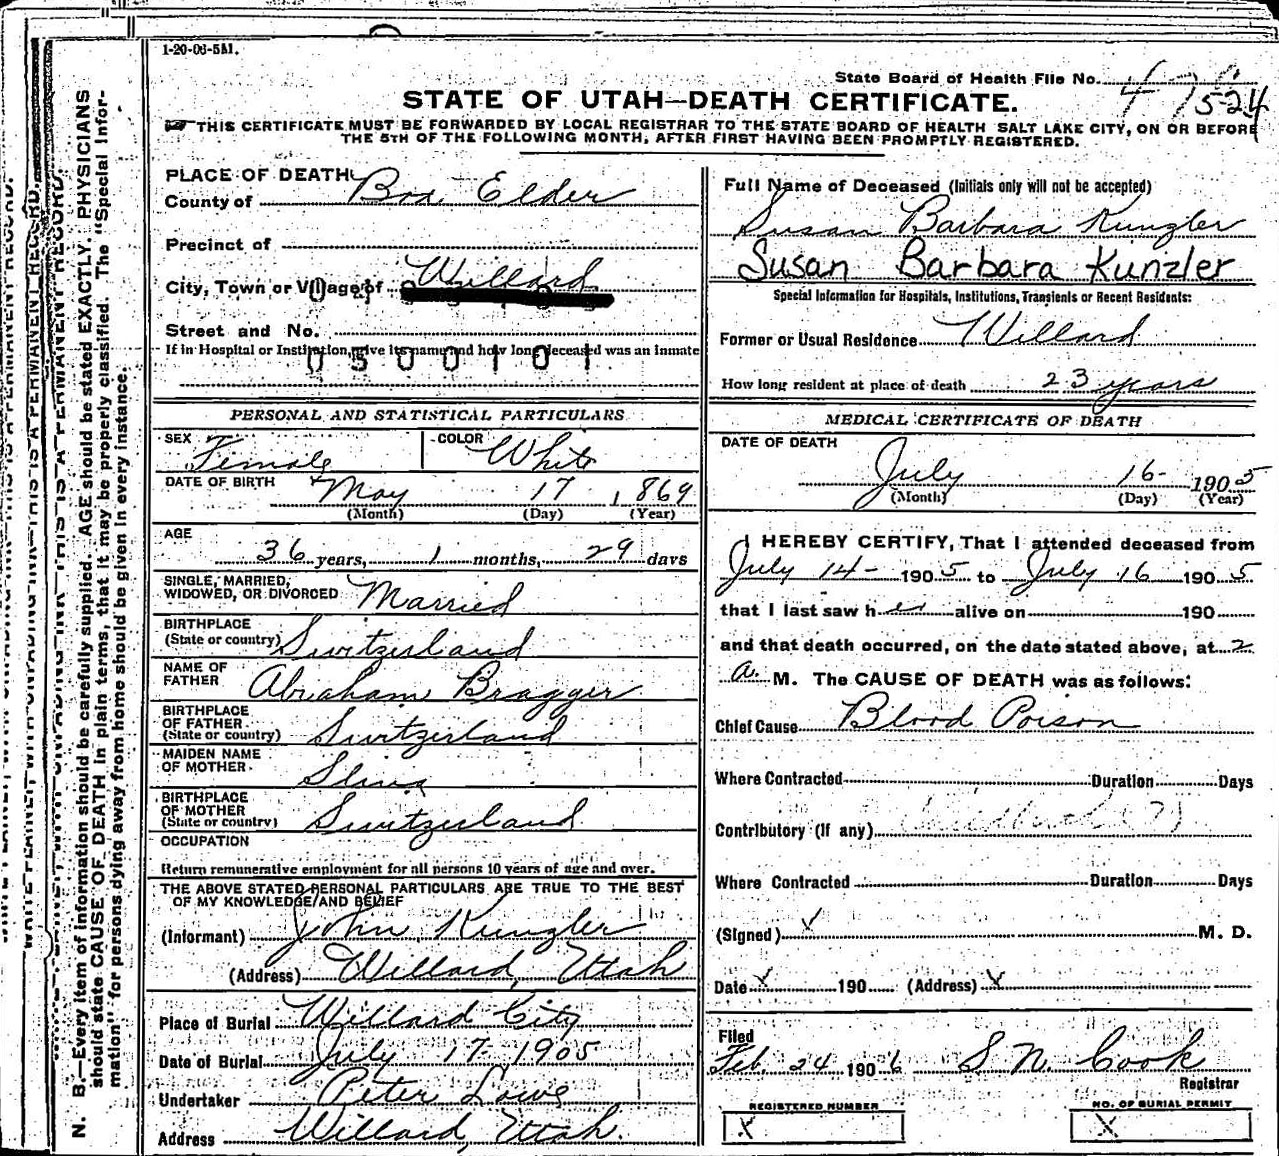 1-20-06-5M.
State Board of Health File No. 47 524
STATE OF UTAH—DEATH CERTIFICATE.
THIS CERTIFICATE MUST BE FORWARDED BY LOCAL REGISTRAR TO THE STATE BOARD OF HEALTH SALT LAKE CITY, ON OR BEFORE
THE 5TH OF THE FOLLOWING MONTH, AFTER FIRST HAVING BEEN PROMPTLY REGISTERED.
PLACE OF DEATH
County of Box Elder
Precinct of
City, Town or Village of Willard
Street and No.
If in Hospital or Institution, give its name and how long deceased was an inmate
0500101
PERSONAL AND STATISTICAL PARTICULARS
SEX Female COLOR White
DATE OF BIRTH May 17 1869
(Month) (Day) (Year)
AGE
36 years, 1 months, 29 days
SINGLE, MARRIED,
WIDOWED, OR DIVORCED Married
BIRTHPLACE
(State or country) Switzerland
NAME OF
FATHER Abraham Bragger
BIRTHPLACE
OF FATHER
(State or country) Switzerland
MAIDEN NAME
OF MOTHER
BIRTHPLACE
OF MOTHER
(State or country) Switzerland
OCCUPATION
Return remunerative employment for all persons 10 years of age and over.
THE ABOVE STATED PERSONAL PARTICULARS ARE TRUE TO THE BEST
OF MY KNOWLEDGE AND BELIEF
(Informant) John Kunzler
(Address) Willard, Utah
Place of Burial Willard City
Date of Burial July 17 1905
Undertaker Peter Lowe
Address Willard, Utah.
Full Name of Deceased (Initials only will not be accepted)
Susan Barbara Kunzler
Susan Barbara Kunzler
Special Information for Hospitals, Institutions, Transients or Recent Residents:
Former or Usual Residence Willard
How long resident at place of death 23 years
MEDICAL CERTIFICATE OF DEATH
DATE OF DEATH
July 16 1905
(Month) (Day) (Year)
I HEREBY CERTIFY, That I attended deceased from
July 14 - 1905 to July 16 1905
that I last saw her alive on 190
and that death occurred, on the date stated above, at 2
a. M. The CAUSE OF DEATH was as follows:
Chief Cause Blood Poison
Where Contracted Duration Days
Contributory (If any) (?)
Where Contracted Duration Days
(Signed) X M. D.
Date X 190 (Address) X
Filed
Feb. 24 1906 S N. Cook
Registrar
REGISTERED NUMBER
X
NO. OF BURIAL PERMIT
X
N. B.—Every item of information should be carefully supplied. AGE should be stated EXACTLY. PHYSICIANS
should state CAUSE OF DEATH in plain terms, that it may be properly classified. The "Special Infor-
mation" for persons dying away from home should be given in every instance.